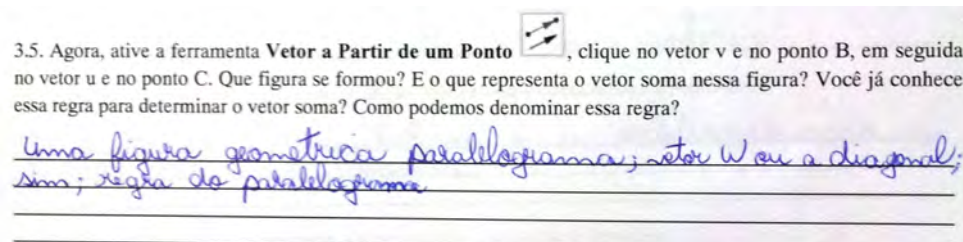 3.5. Agora, ative a ferramenta Vetor a Partir de um Ponto , clique no vetor v e no ponto B, em seguida
no vetor u e no ponto C. Que figura se formou? E o que representa o vetor soma nessa figura? Você já conhece
essa regra para determinar o vetor soma? Como podemos denominar essa regra?
Uma figura geometrica paralelogramma; vetor W ou a diagonal;
sim; regra do paralelogramma